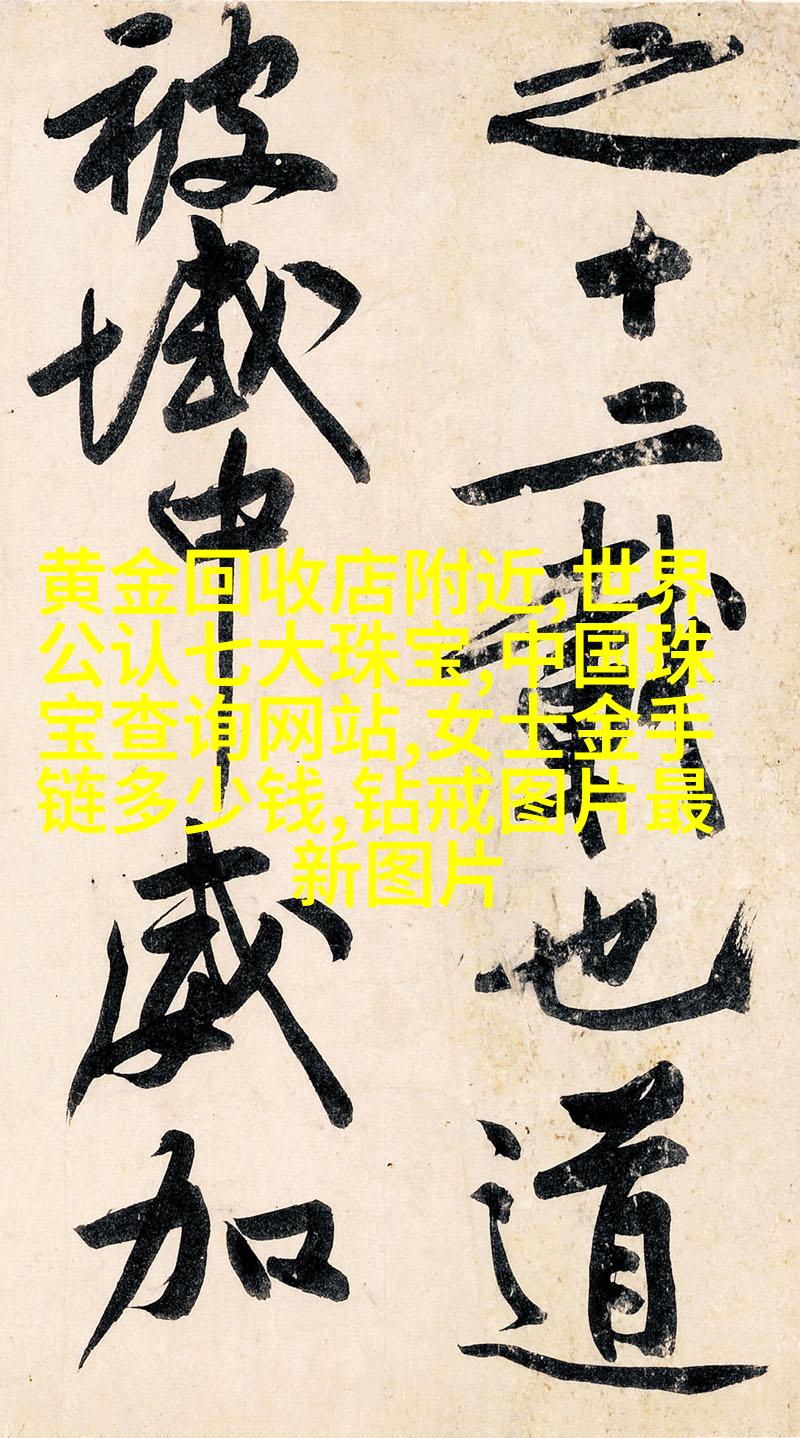 之十二載也道
被域中威加
黄金回收店附近,世界
公认七大珠宝,中国珠
宝查询网站,女士金手
链多少钱,钻戒图片最
新图片